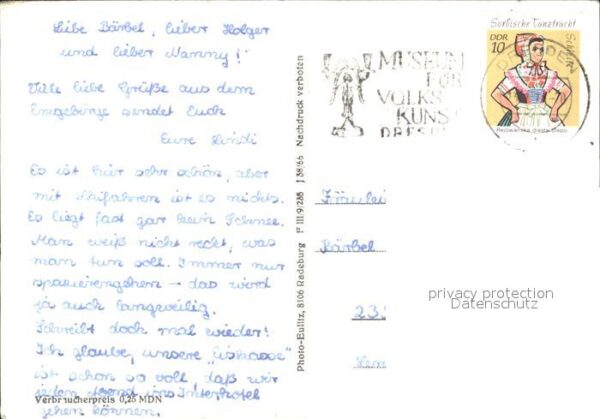 Liebe Bärbel, lieber Holger
und lieber Nanny!
Viele liebe Grüße aus dem
Erzgebirge sendet Euch
Eure Heidi
Es ist hier sehr schön, aber
mit Skifahren ist es nichts.
Es liegt fast gar kein Schnee.
Man weiß nicht recht, was
man tun soll. Immer nur
spazierengehen – das wird
ja auch langweilig.
Schreibt doch mal wieder!
Ich glaube, unsere
ist schon so voll, daß wir
jeden Abend ins Interhotel
gehen können.
Verbraucherpreis 0,26 MDN
Photo-Eulitz, 8106 Radeburg F III/9/285 J 38/66 Nachdruck verboten
MUSEUM
FÜR
VOLKS
KUNST
DRESDEN
Sorbische Tanztracht
Schleife
DDR
10
Fräulei
Bärbel
23
privacy protection
Datenschutz